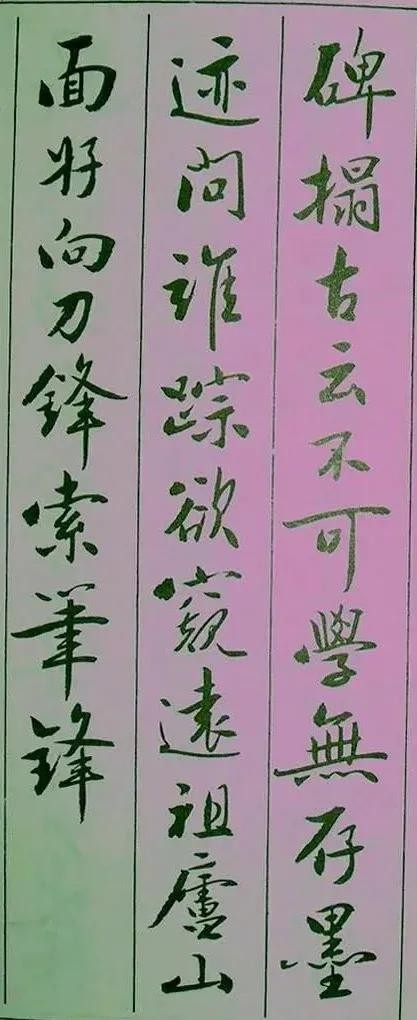 碑搨古云不可學無存墨
迹問誰踪欲窺遠祖廬山
面好向刀鋒索筆鋒